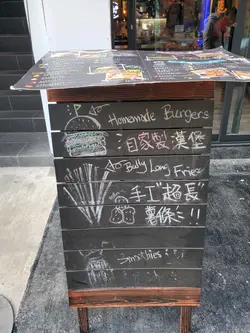 Homemade Burgers
自家製漢堡
Bully Long Fries
手工"超長"
薯條 !!
Smoothies